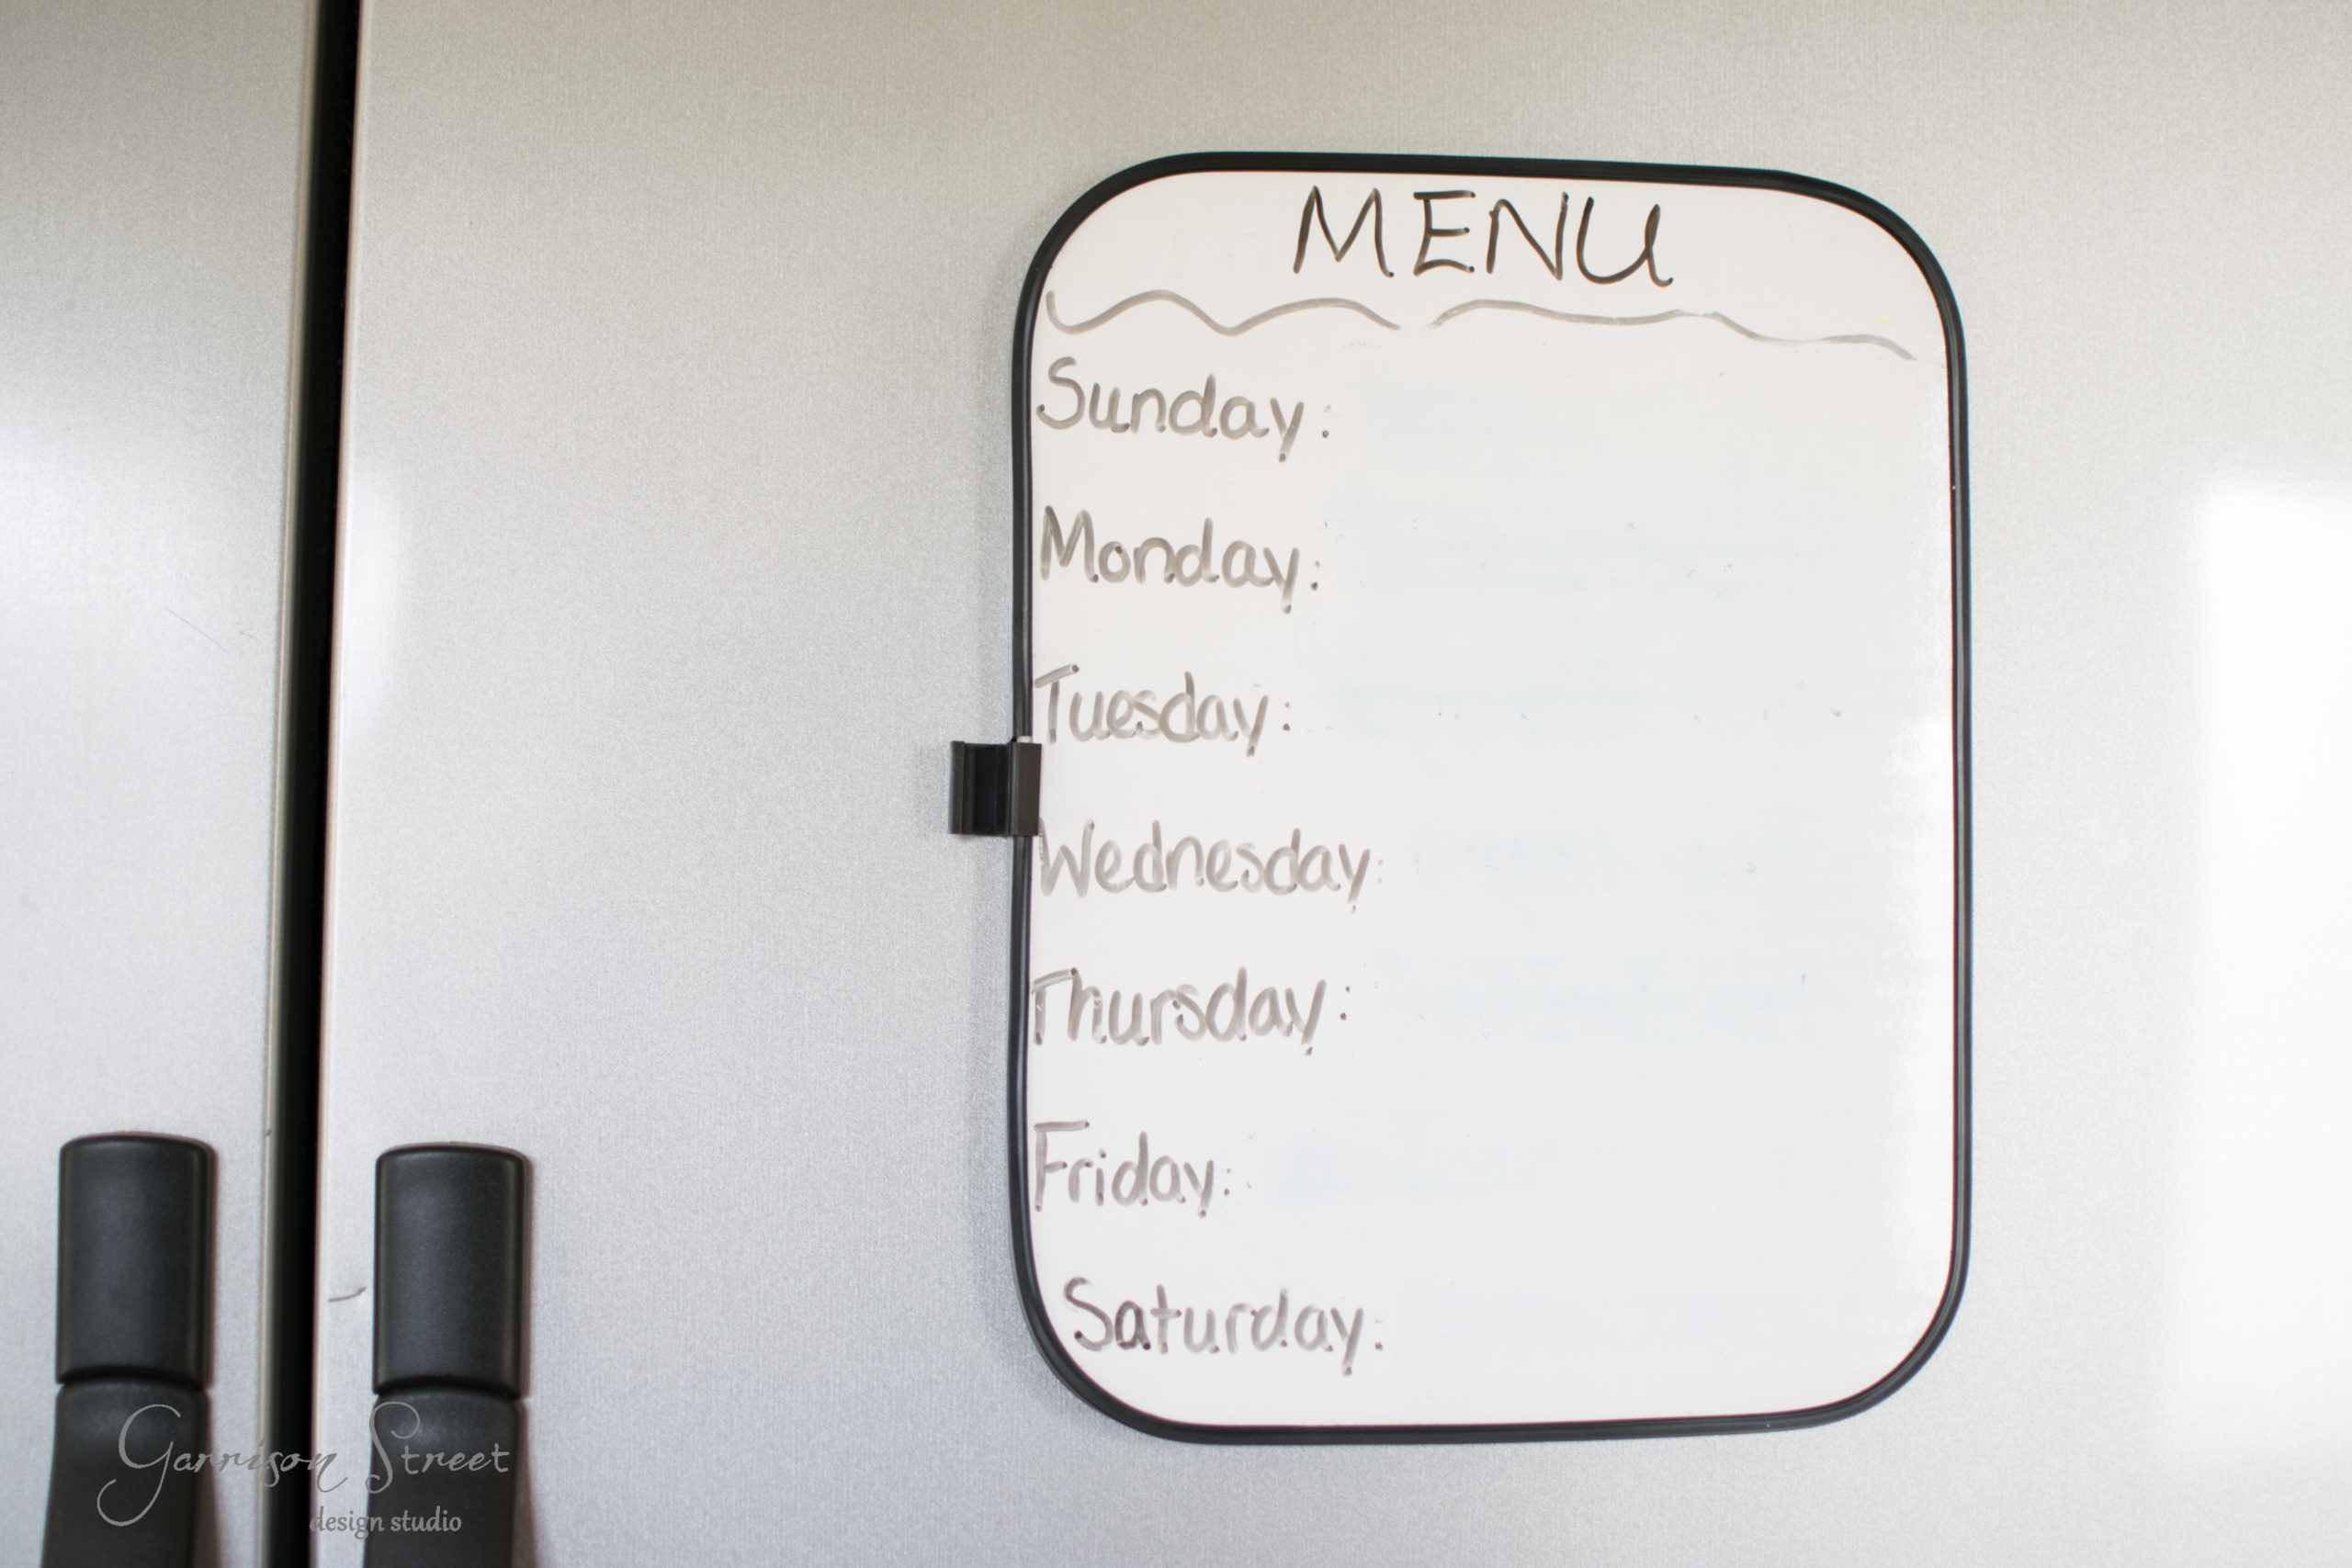 MENU
Sunday:
Monday:
Tuesday:
Wednesday:
Thursday:
Friday:
Saturday:
Garrison Street
design studio